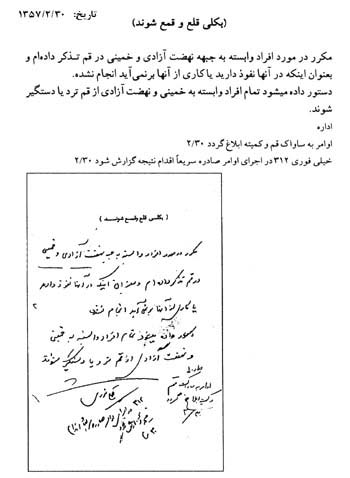 تاریخ: ۱۳۵۷/۲/۳۰
(بکلی قلع و قمع شوند)
مکرر در مورد افراد وابسته به جبهه نهضت آزادی و خمینی در قم تذکر داده‌ام و
بعنوان اینکه در آنها نفوذ دارید یا کاری از آنها برنمی‌آید انجام نشده.
دستور داده میشود تمام افراد وابسته به خمینی و نهضت آزادی از قم ترد یا دستگیر
شوند.
اداره
اوامر به ساواک قم و کمیته ابلاغ گردد ۲/۳۰
خیلی فوری ۳۱۲ در اجرای اوامر صادره سریعاً اقدام نتیجه گزارش شود ۲/۳۰
(بکلی قلع و قمع شوند)
مکرر در مورد افراد وابسته به جبهه نهضت آزادی و خمینی
در قم تذکر داده‌ام و بعنوان اینکه در آنها نفوذ دارید
یا کاری از آنها برنمی‌آید انجام نشده
۲
دستور داده میشود تمام افراد وابسته به خمینی
و نهضت آزادی از قم ترد یا دستگیر شوند
اداره
اوامر به ساواک قم
و کمیته ابلاغ گردد
خیلی فوری
۳۱۲